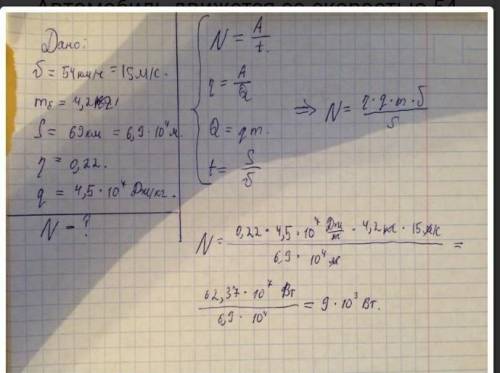 Автомобиль движется со скоростью 54
Дано:
υ = 54 км/ч = 15 м/с.
S = 69 км = 6,9 · 10⁴ м.
η = 0,22.
q = 4,5 · 10⁷ Дж/кг.
N - ?
N = A/t.
η = A/Q
Q = qm.
t = S/υ
⇒ N = η · q · m · υ / S
N = 0,22 · 4,5 · 10⁷ Дж/кг · 4,2 кг · 15 м/с / 6,9 · 10⁴ м =
62,37 · 10⁷ Вт / 6,9 · 10⁴ = 9 · 10³ Вт.